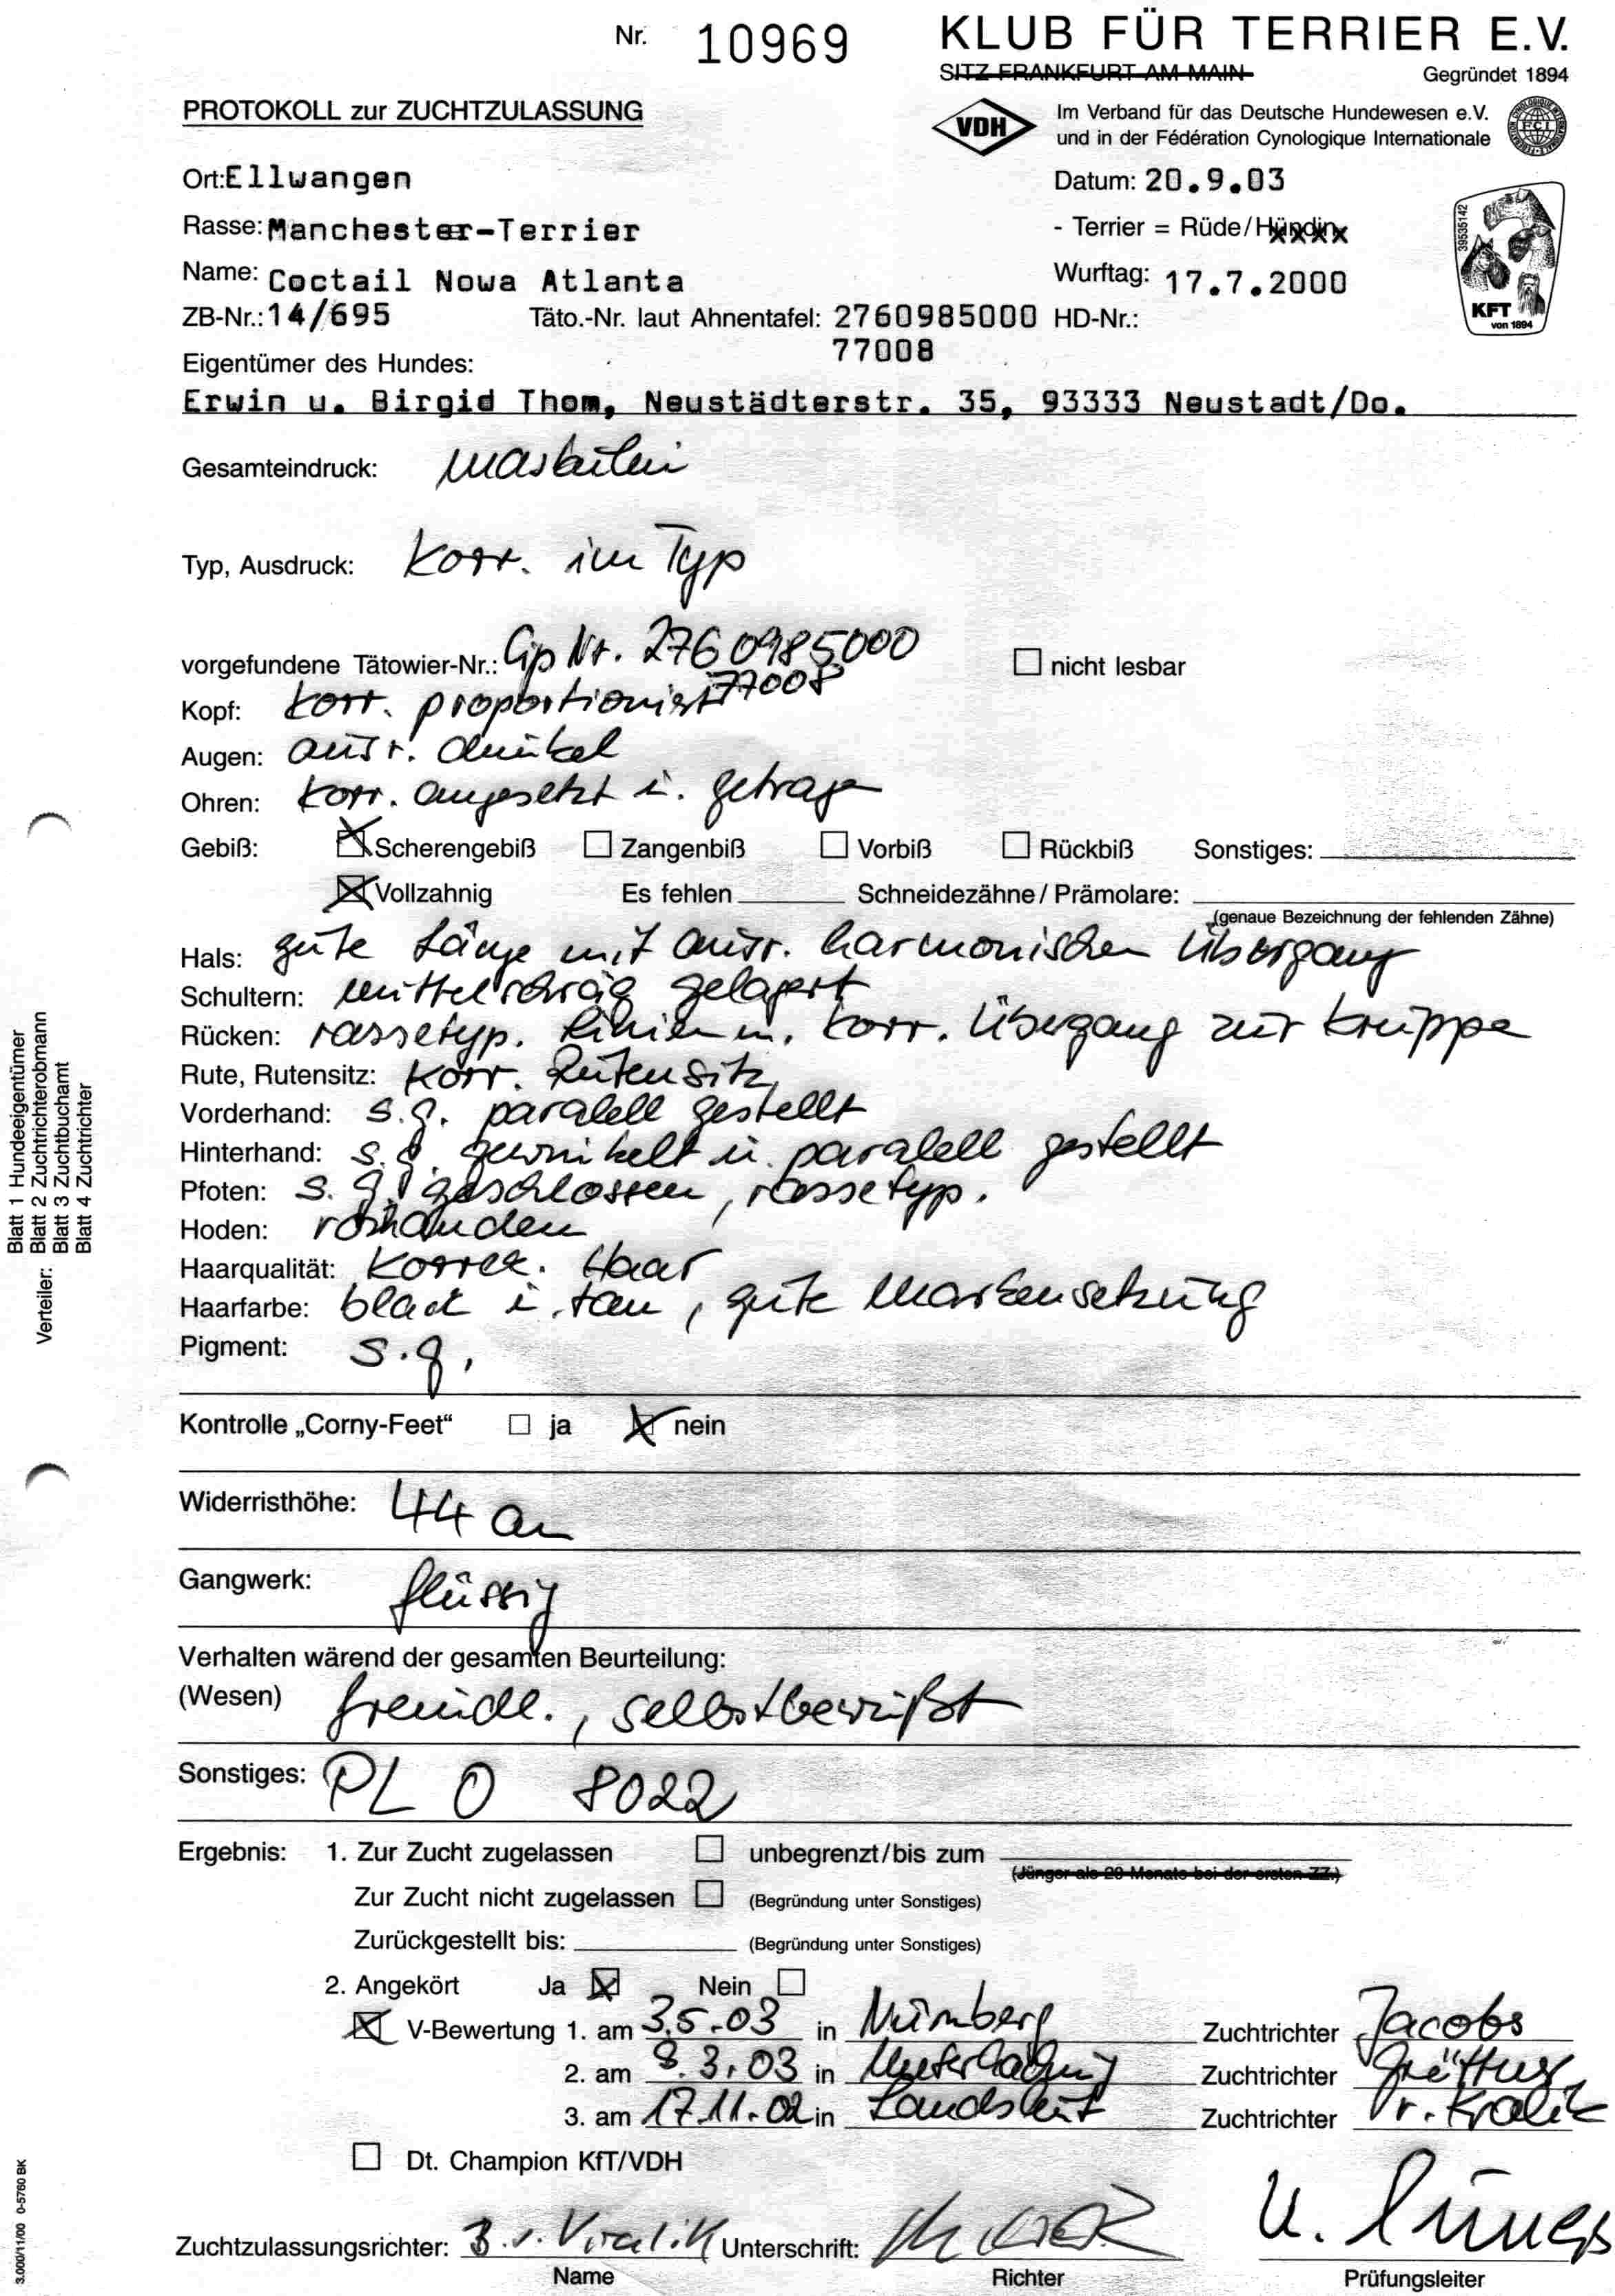 Nr. 10969
KLUB FÜR TERRIER E.V.
SITZ FRANKFURT AM MAIN
Gegründet 1894
PROTOKOLL zur ZUCHTZULASSUNG
VDH
Im Verband für das Deutsche Hundewesen e.V.
und in der Fédération Cynologique Internationale
FCI
Ort: Ellwangen
Datum: 20.9.03
Rasse: Manchester-Terrier
- Terrier = Rüde/Hündin
39535142
Name: Coctail Nowa Atlanta
Wurftag: 17.7.2000
KFT
von 1894
ZB-Nr.: 14/695 Täto.-Nr. laut Ahnentafel: 2760985000 HD-Nr.:
77008
Eigentümer des Hundes:
Erwin u. Birgid Thom, Neustädterstr. 35, 93333 Neustadt/Do.
Gesamteindruck: maskulin
Typ, Ausdruck: Korr. im Typ
vorgefundene Tätowier-Nr.: Cip Nr. 2760985000 nicht lesbar
77008
Kopf: korr. proportioniert
Augen: ausr. dunkel
Ohren: korr. angesetzt u. getragen
Gebiß: Scherengebiß Zangenbiß Vorbiß Rückbiß Sonstiges:
Vollzahnig Es fehlen Schneidezähne / Prämolare:
(genaue Bezeichnung der fehlenden Zähne)
Hals: gute Länge mit ausr. harmonischen Übergang
Schultern: mittelschräg gelagert
Rücken: rassetyp. Linien m. korr. Übergang zur Kruppe
Rute, Rutensitz: Korr. Rutensitz
Vorderhand: s.g. paralell gestellt
Hinterhand: s.g. gewinkelt u. paralell gestellt
Pfoten: s.g. geschlossen, rassetyp.
Hoden: vorhanden
Haarqualität: Korrek. Haar
Haarfarbe: black u. tan, gute Markensetzung
Pigment: s.g.
Kontrolle „Corny-Feet“ ja nein
Widerristhöhe: 44 cm
Gangwerk: flüssig
Verhalten wärend der gesamten Beurteilung:
(Wesen) freundl., selbstbewußt
Sonstiges: PL 0 8022
Ergebnis: 1. Zur Zucht zugelassen unbegrenzt/bis zum
(Jünger als 20 Monate bei der ersten ZZ.)
Zur Zucht nicht zugelassen (Begründung unter Sonstiges)
Zurückgestellt bis: (Begründung unter Sonstiges)
2. Angekört Ja Nein
V-Bewertung 1. am 3.5.03 in Nürnberg Zuchtrichter Jacobs
2. am 9.3.03 in Zuchtrichter
3. am 17.11.02 in Landshut Zuchtrichter v. Kralik
Dt. Champion KfT/VDH
Zuchtzulassungsrichter: Unterschrift:
Name Richter Prüfungsleiter
Verteiler: Blatt 1 Hundeeigentümer
Blatt 2 Zuchtrichterobmann
Blatt 3 Zuchtbuchamt
Blatt 4 Zuchtrichter
3.000/11/00 0-5760 BK